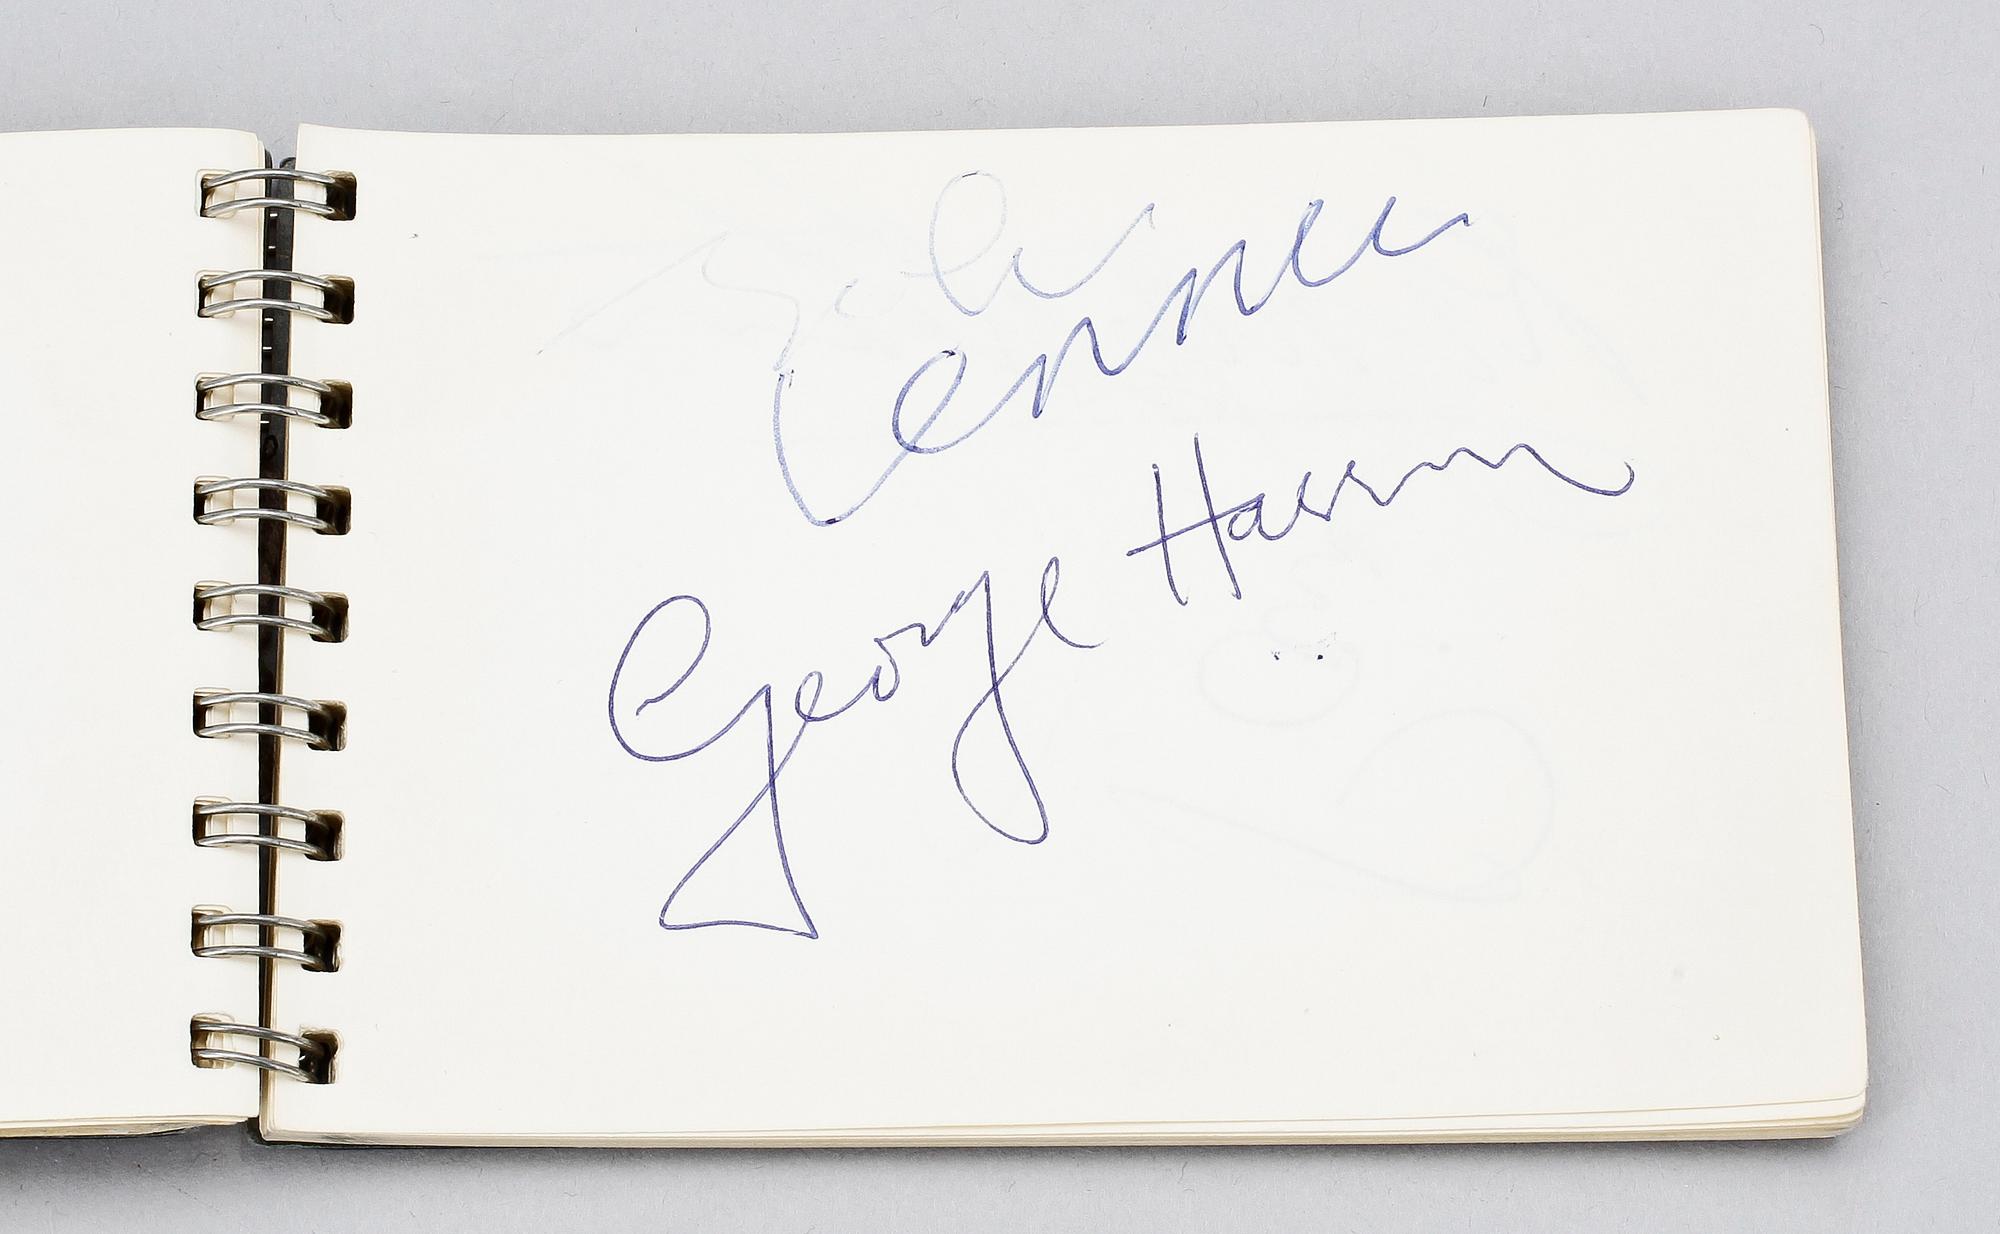 John
Lennon
George Harrison